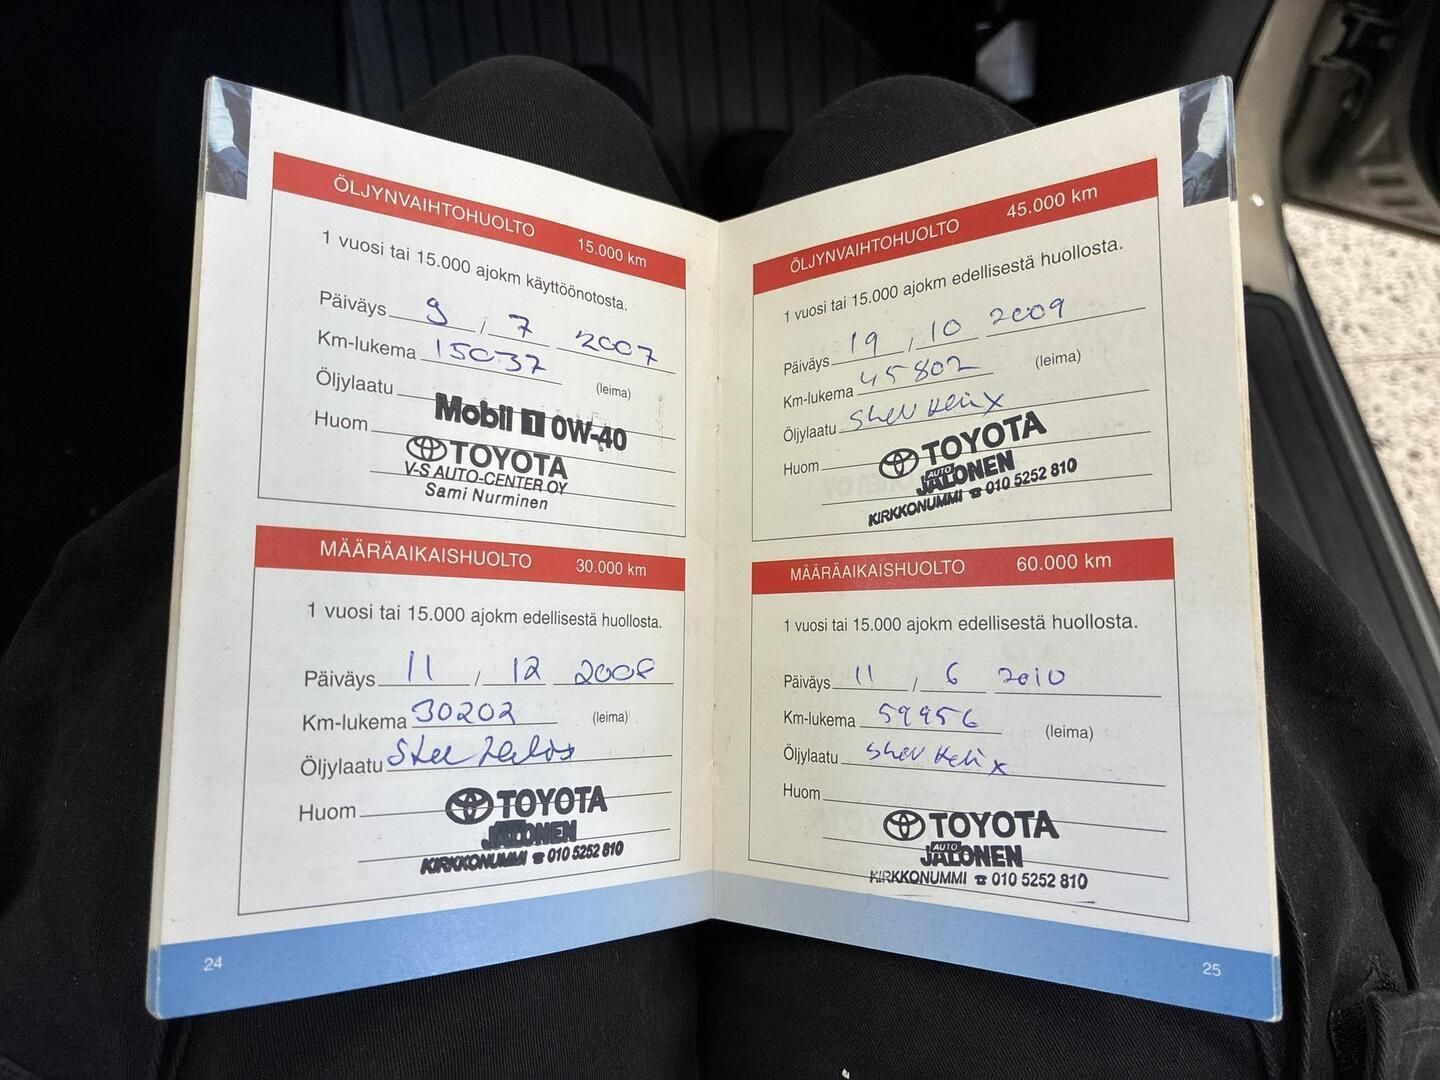 ÖLJYNVAIHTOHUOLTO 15.000 km
1 vuosi tai 15.000 ajokm käyttöönotosta.
Päiväys 9 / 7 2007
Km-lukema 15037 (leima)
Öljylaatu
Mobil 1 0W-40
Huom
TOYOTA
V-S AUTO-CENTER OY
Sami Nurminen
MÄÄRÄAIKAISHUOLTO 30.000 km
1 vuosi tai 15.000 ajokm edellisestä huollosta.
Päiväys 11 / 12 2008
Km-lukema 30202 (leima)
Öljylaatu
Huom
TOYOTA
JALONEN
KIRKKONUMMI ☎ 010 5252 810
24
ÖLJYNVAIHTOHUOLTO 45.000 km
1 vuosi tai 15.000 ajokm edellisestä huollosta.
Päiväys 19 / 10 2009
Km-lukema 45802 (leima)
Öljylaatu Shell Helix
Huom
TOYOTA
AUTO
JALONEN
KIRKKONUMMI ☎ 010 5252 810
MÄÄRÄAIKAISHUOLTO 60.000 km
1 vuosi tai 15.000 ajokm edellisestä huollosta.
Päiväys 11 / 6 2010
Km-lukema 59956 (leima)
Öljylaatu Shell Helix
Huom
TOYOTA
AUTO
JALONEN
KIRKKONUMMI ☎ 010 5252 810
25